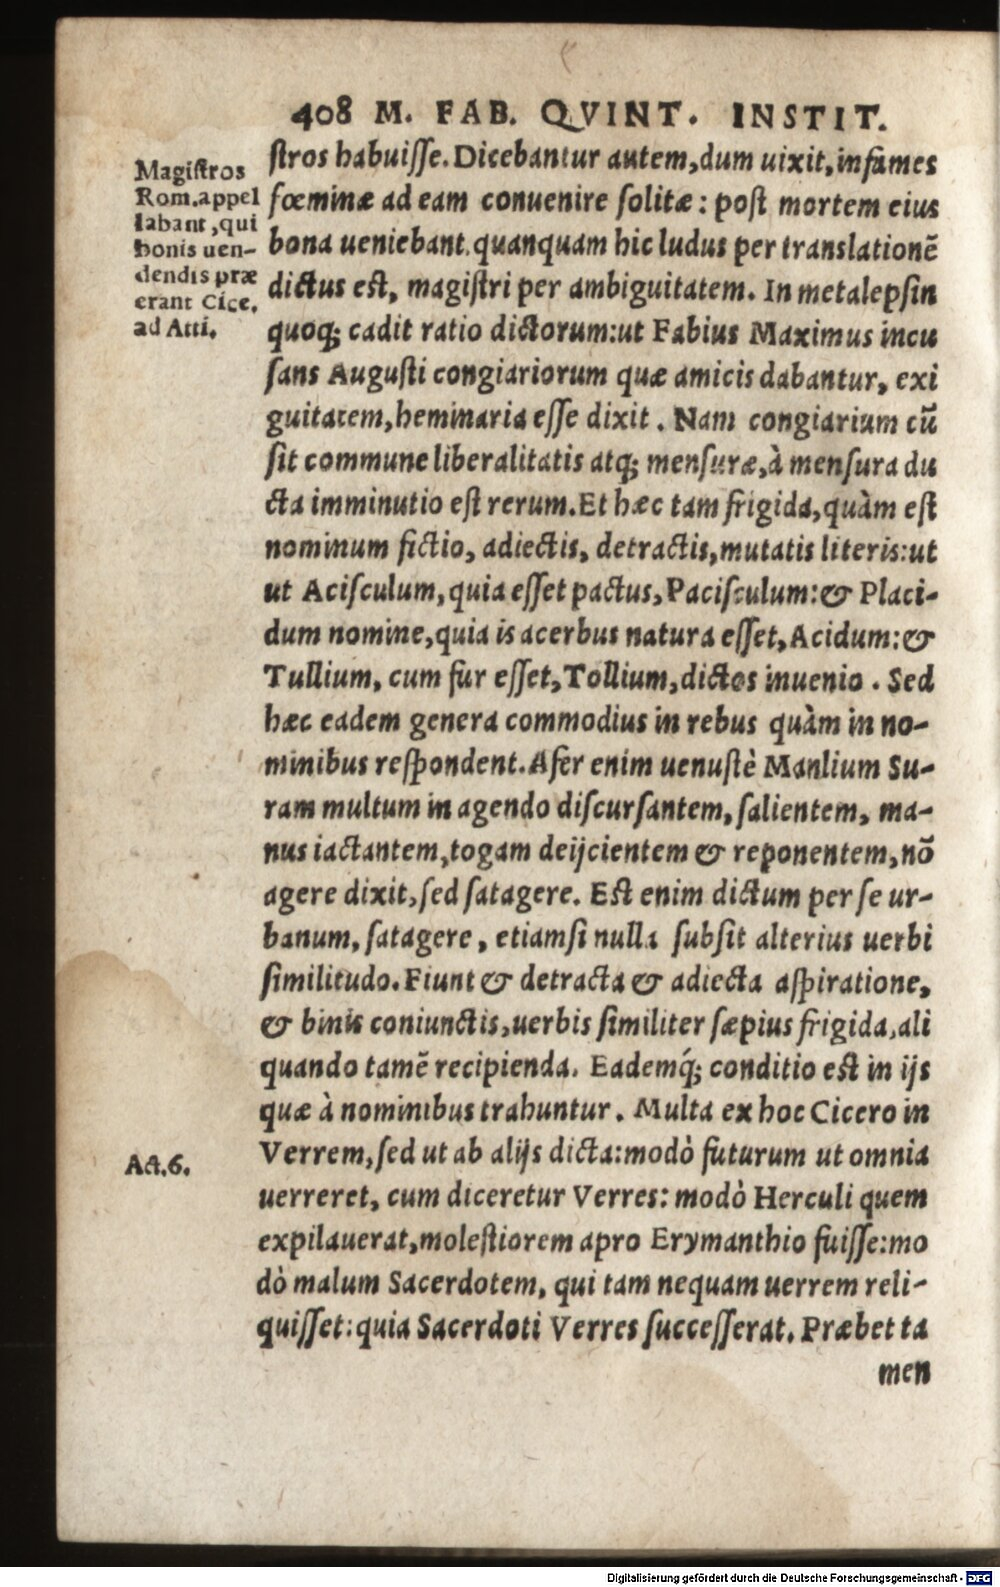 408 M. FAB. QVINT. INSTIT.
Magistros
Rom.appel
labant,qui
bonis uen-
dendis præ
erant Cice.
ad Atti.
stros habuisse. Dicebantur autem,dum uixit, infames
fœminæ ad eam conuenire solitæ: post mortem eius
bona ueniebant.quanquam hic ludus per translationē
dictus est, magistri per ambiguitatem. In metalepsin
quoq; cadit ratio dictorum:ut Fabius Maximus incu
sans Augusti congiariorum quæ amicis dabantur, exi
guitatem,heminaria esse dixit. Nam congiarium cū
sit commune liberalitatis atq; mensuræ,à mensura du
cta imminutio est rerum.Et hæc tam frigida,quàm est
nominum fictio, adiectis, detractis,mutatis literis:ut
ut Acisculum,quia esset pactus,Pacisculum:& Placi-
dum nomine,quia is acerbus natura esset,Acidum:&
Tullium, cum fur esset,Tollium,dictos inuenio. Sed
hæc eadem genera commodius in rebus quàm in no-
minibus respondent.Afer enim uenustè Manlium Su-
ram multum in agendo discursantem, salientem, ma-
nus iactantem,togam deijcientem & reponentem,nō
agere dixit,sed satagere. Est enim dictum per se ur-
banum, satagere, etiamsi nulla subsit alterius uerbi
similitudo.Fiunt & detracta & adiecta aspiratione,
& binis coniunctis,uerbis similiter sæpius frigida,ali
quando tamē recipienda. Eademq́; conditio est in ijs
quæ à nominibus trahuntur. Multa ex hoc Cicero in
Act.6.
Verrem,sed ut ab alijs dicta:modò futurum ut omnia
uerreret, cum diceretur Verres: modò Herculi quem
expilauerat,molestiorem apro Erymanthio fuisse:mo
dò malum Sacerdotem, qui tam nequam uerrem reli-
quisset:quia Sacerdoti Verres successerat. Præbet ta
men
Digitalisierung gefördert durch die Deutsche Forschungsgemeinschaft - DFG